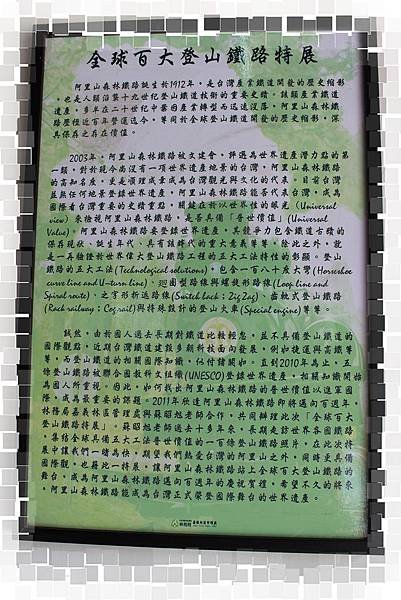 全球百大登山鐵路特展
阿里山森林鐵路誕生於1912年，是台灣產業鐵道開發的歷史縮影
，也是人類沿襲十九世紀登山鐵道技術的重要史蹟，該類產業鐵道
遺產，多半在二十世紀中葉因產業轉型而迅速沒落，阿里山森林鐵
路歷經近百年營運迄今，等同於全球登山鐵道開發的歷史縮影，深
具保存之存在價值。
2003年，阿里山森林鐵路被文建會，評選為世界遺產潛力點的第
一類，對於現今尚沒有一項世界遺產地景的台灣，阿里山森林鐵路
的高知名度，更是順理成章成為台灣觀光與文化的代表。目前台灣
並無任何地景登錄世界遺產，阿里山森林鐵路能否代表台灣，成為
國際看台灣重要的史蹟重點，關鍵在於以世界性的眼光（Universal
view）來檢視阿里山森林鐵路，是否具備「普世價值」(Universal
Value)，阿里山森林鐵路要登錄世界遺產，其競爭力包含鐵道古蹟的
保存現狀，誕生年代，具有該時代的重大意義等等，除此之外，就
是一再驗證於世界偉大登山鐵路工程的五大工法特性的彰顯。登山
鐵路的五大工法(Technological solutions)，包含一百八十度大彎(Horseshoe
curve line and U-turn line)，迴圈型路線與螺旋形路線(Loop line and
Spiral route)，之字形折返路線(Switch back : Zig Zag)，齒軌式登山鐵路
(Rack railway : Cog rail)與特殊設計的登山火車(Special engine)等等。
誠然，由於國人過去長期對鐵道比較輕忽，並不具備登山鐵道的
國際觀點，近期台灣鐵道建設多朝科技面向發展，例如捷運與高鐵等
等，而登山鐵道的相關國際知識，仍付諸闕如。直到2010年為止，五
條登山鐵路被聯合國教科文組織(UNESCO)登錄世界遺產，相關知識開始
為國人所重視。因此，如何找出阿里山森林鐵路的普世價值以進軍國
際，成為最重要的課題。2011年欣逢阿里山森林鐵路即將邁向百週年，
林務局嘉義林區管理處與蘇昭旭老師合作，共同辦理此次「全球百大
登山鐵路特展」，蘇昭旭老師過去十多年來，長期走訪世界各國鐵路
，集結全球具備五大工法普世價值的一百條登山鐵路照片，在此次特
展中讓我們一睹為快，期望我們熱愛台灣的阿里山之外，同時更具備
國際觀，也藉此一特展，讓阿里山森林鐵路站上全球百大登山鐵路的
舞台，成為阿里山森林鐵路邁向百週年的慶祝賀禮，希望不久的將來
，阿里山森林鐵路能成為台灣正式榮登國際舞台的世界遺產。
林務局